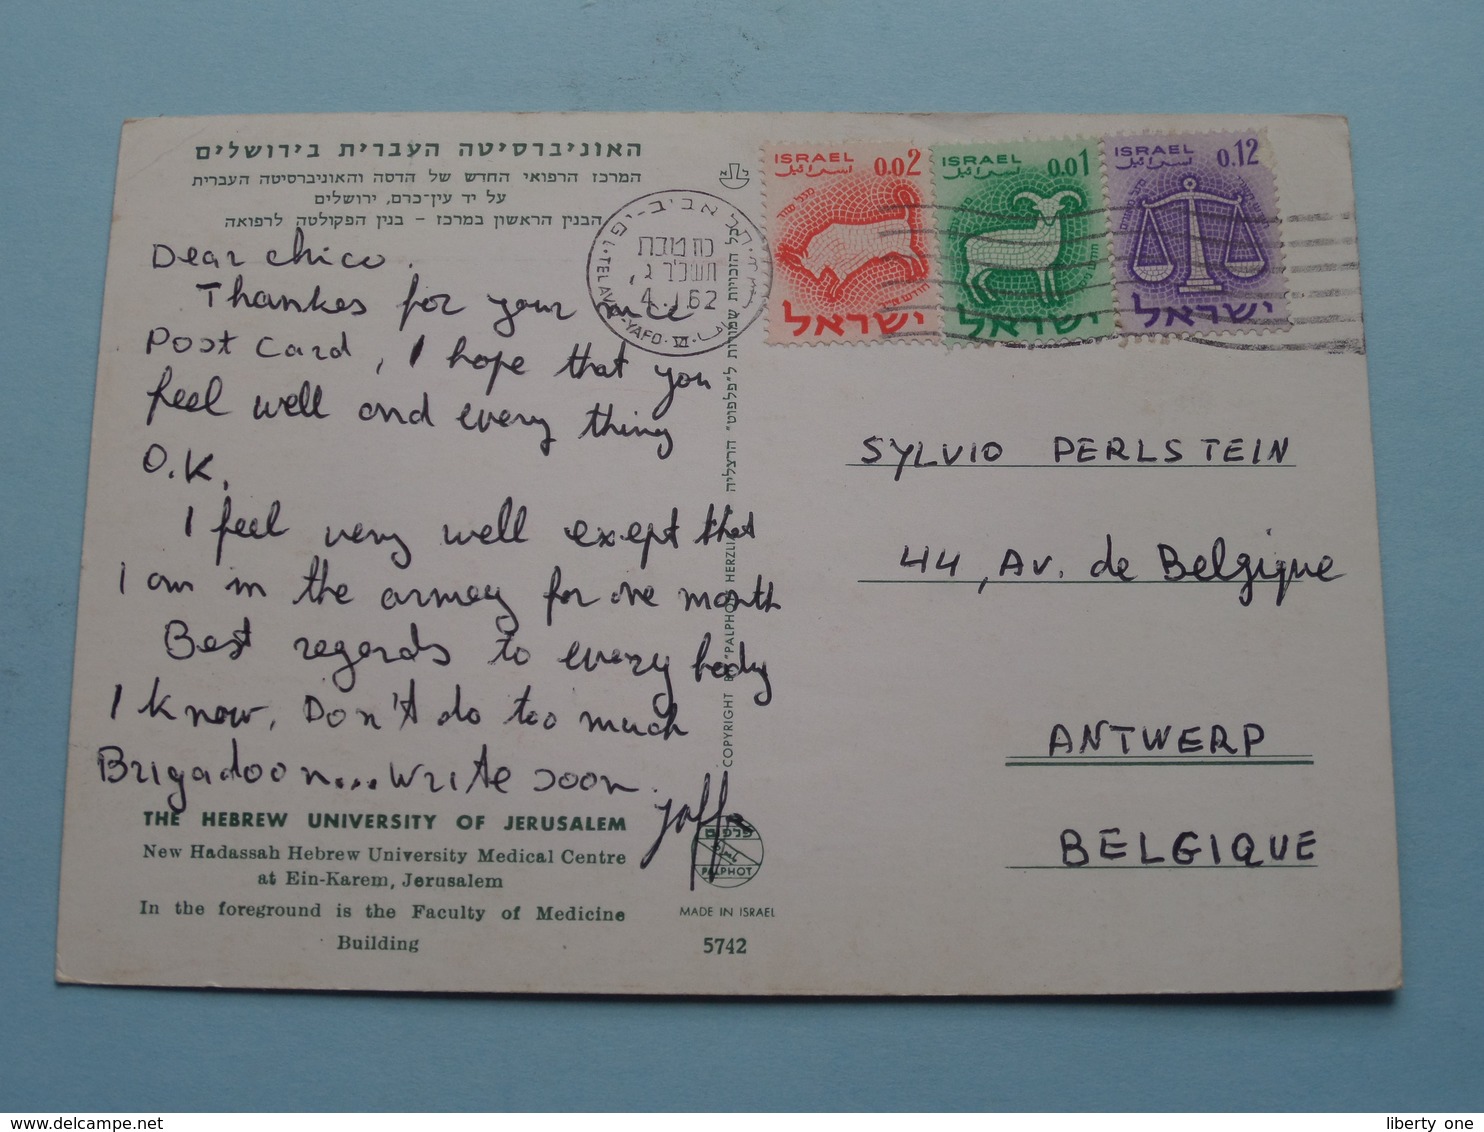 האוניברסיטה העברית בירושלים
המרכז הרפואי החדש של הדסה והאוניברסיטה העברית
על יד עין-כרם, ירושלים
הבנין הראשון במרכז – בנין הפקולטה לרפואה
Dear chico.
Thankes for your nice
Post Card, I hope that you
feel well and every thing
O.K.
I feel very well exept that
I am in the armey for one month
Best regards to every body
I know. Don't do too much
Brigadoon... write soon.
Jaffa
THE HEBREW UNIVERSITY OF JERUSALEM
New Hadassah Hebrew University Medical Centre
at Ein-Karem, Jerusalem
In the foreground is the Faculty of Medicine
Building
כל הזכויות שמורות ל"פלפוט" הרצליה
COPYRIGHT BY "PALPHOT" HERZLIA
פלפוט
PALPHOT
MADE IN ISRAEL
5742
תל אביב-יפו
TEL AVIV-YAFO · VI
כז טבת
4.1.62
ISRAEL 0.02
اسرائيل
ישראל
ISRAEL 0.01
اسرائيل
ישראל
ISRAEL 0.12
اسرائيل
ישראל
SYLVIO PERLSTEIN
44, Av. de Belgique
ANTWERP
BELGIQUE
liberty one